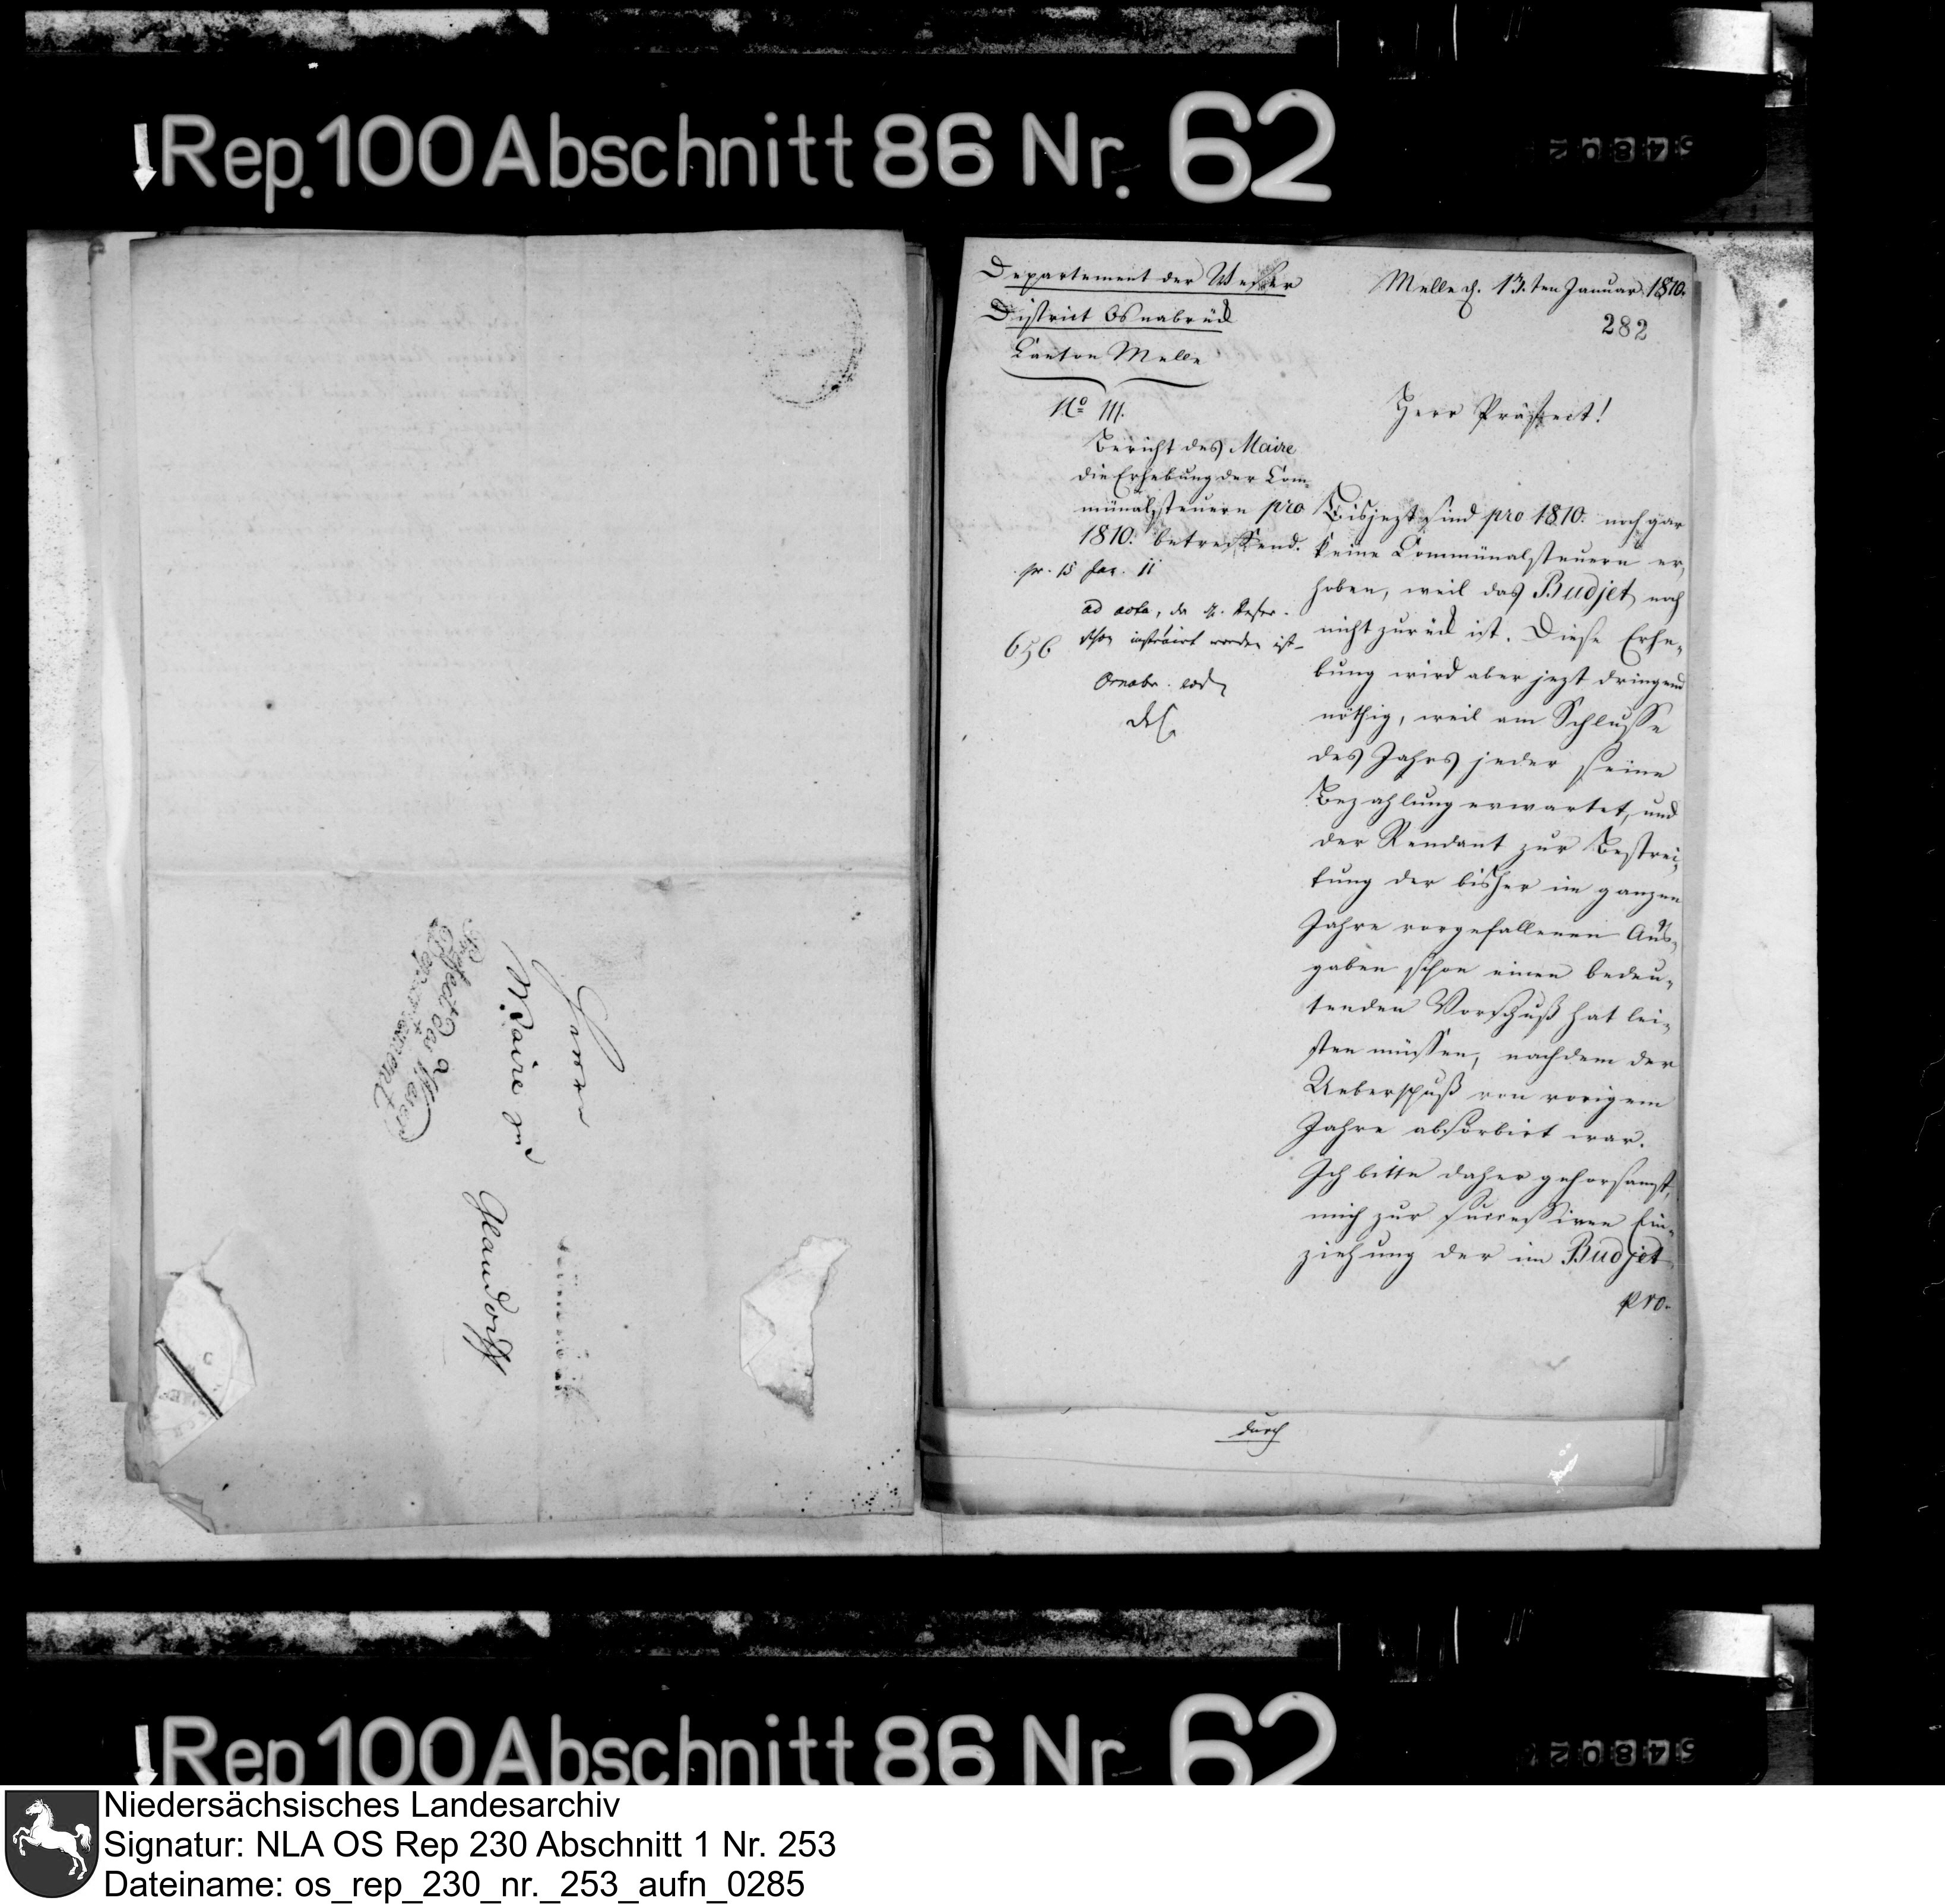 Rep. 100 Abschnitt 86 Nr. 62
Herrn
Maire zu
Glandorff
Praefect des Weser
Departement
Departement der Weser
District Osnabrück
Canton Melle
No III.
Bericht des Maire
die Erhebung der Com-
munalsteuern pro
1810. betreffend.
pr. 15 Jan. 11
ad acta, da
schon instruirt worden ist
656
Osnabr. eod
Melle d. 13.ten Januar. 1810.
282
Herr Präfect!
Bisjezt sind pro 1810. noch gar
keine Communalsteuern er-
hoben, weil das Budjet noch
nicht zurück ist. Diese Erhe-
bung wird aber jezt dringend
nöthig, weil am Schlusse
des Jahrs jeder seine
Bezahlung erwartet, und
der Rendant zur Bestrei-
tung der bisher im ganzen
Jahre vorgefallenen Aus-
gaben schon einen bedeu-
tenden Vorschuß hat lei-
sten müssen, nachdem der
Ueberschuß von vorigem
Jahre absorbirt war.
Ich bitte daher gehorsamst,
mich zur successiven Ein-
ziehung der im Budjet
pro.
durch
Rep 100 Abschnitt 86 Nr 62
Niedersächsisches Landesarchiv
Signatur: NLA OS Rep 230 Abschnitt 1 Nr. 253
Dateiname: os_rep_230_nr._253_aufn_0285